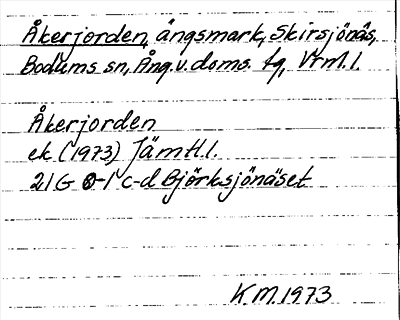 Åkerjorden, ängsmark, Skirsjönäs,
Bodums sn, Ång.v.doms. fg, Vrml.l.
Åkerjorden
ek. (1973) Jämtl.l.
21G 0-1 c-d Björksjönäset
K.M.1973